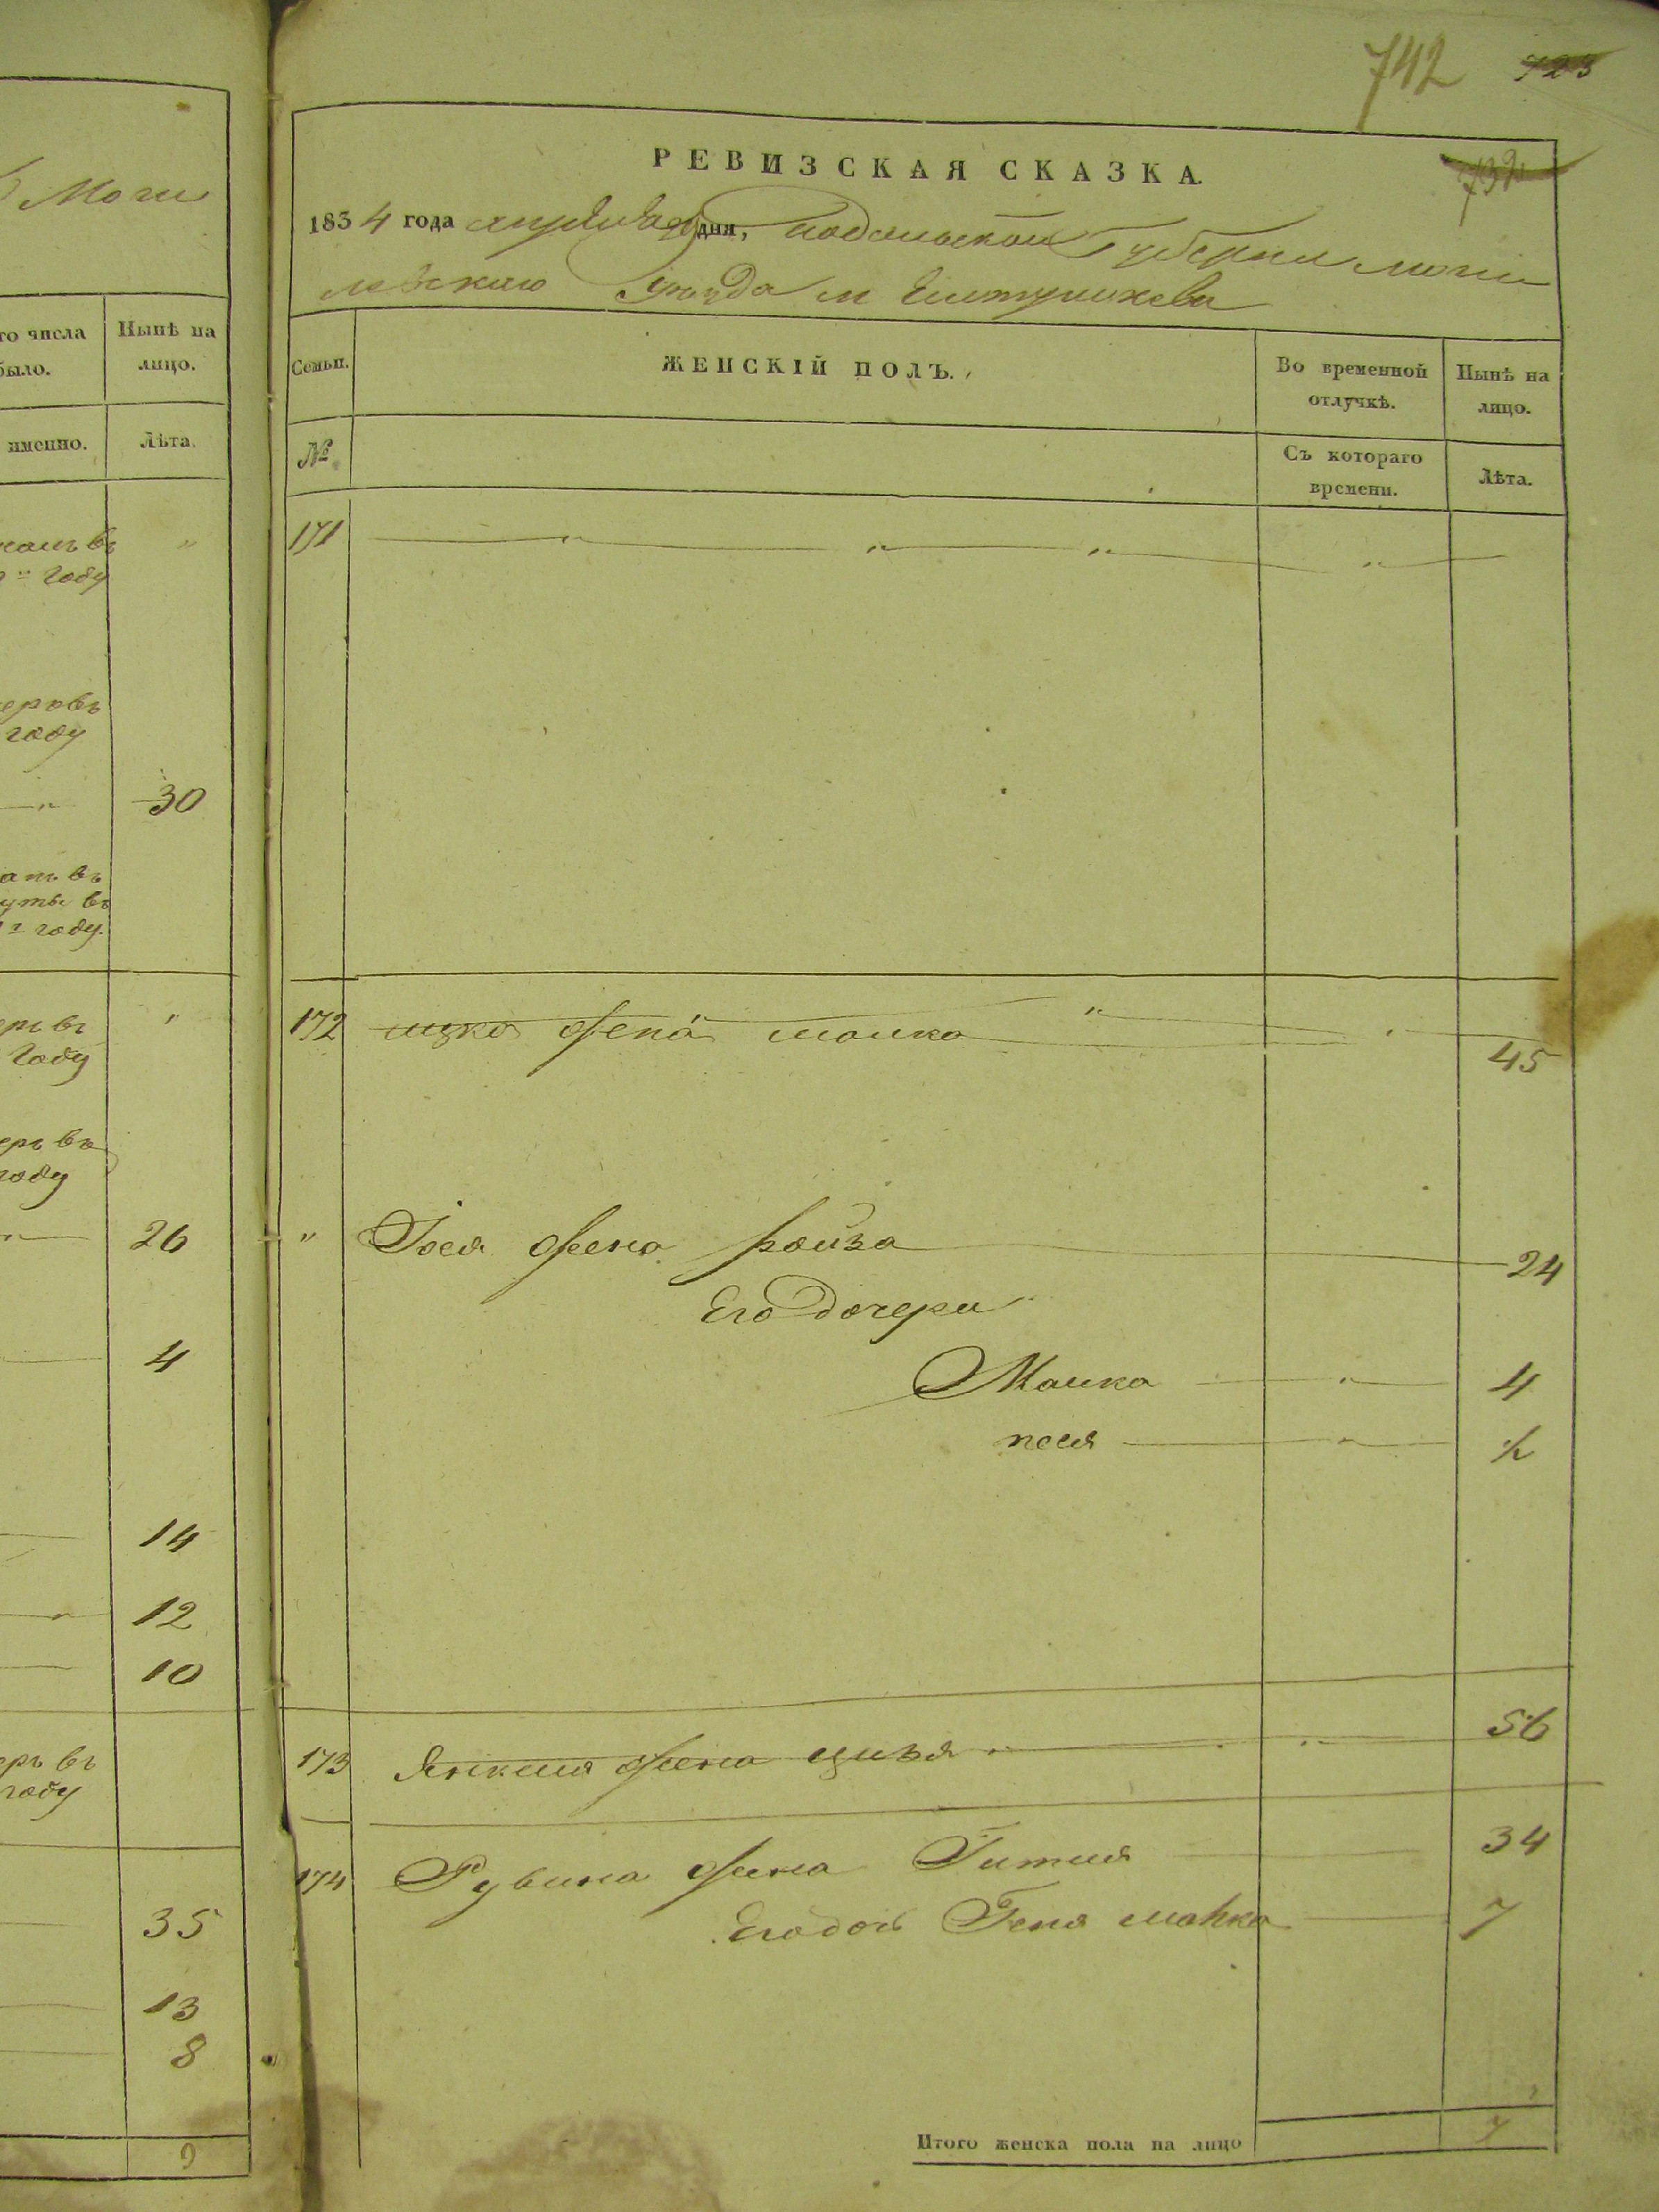 742 723
732
РЕВИЗСКАЯ СКАЗКА.
1834 года апреля дня, Подольской Губернии Моги
левскаго уезда м
Моги
го числа было.
Нынѣ на лицо.
именно.
Лѣта.
Семьи.
ЖЕНСКІЙ ПОЛЪ.
Во временной отлучкѣ.
Нынѣ на лицо.
№
Съ котораго времени.
Лѣта.
въ "
году
171 " " " "
въ
году
" 30
въ
въ
году.
въ "
году
172 ицко жена малка " " 45
въ
году
26
" Іося жена ройза 24
Его дочери
4
Малка " 4
песя " ½
14
12
10
въ
году
173 Янкеля жена цивя " " 56
174 Рувина жена Гитля 34
Его дочь Геня малка 7
35
13
8
9
Итого женска пола на лицо 7